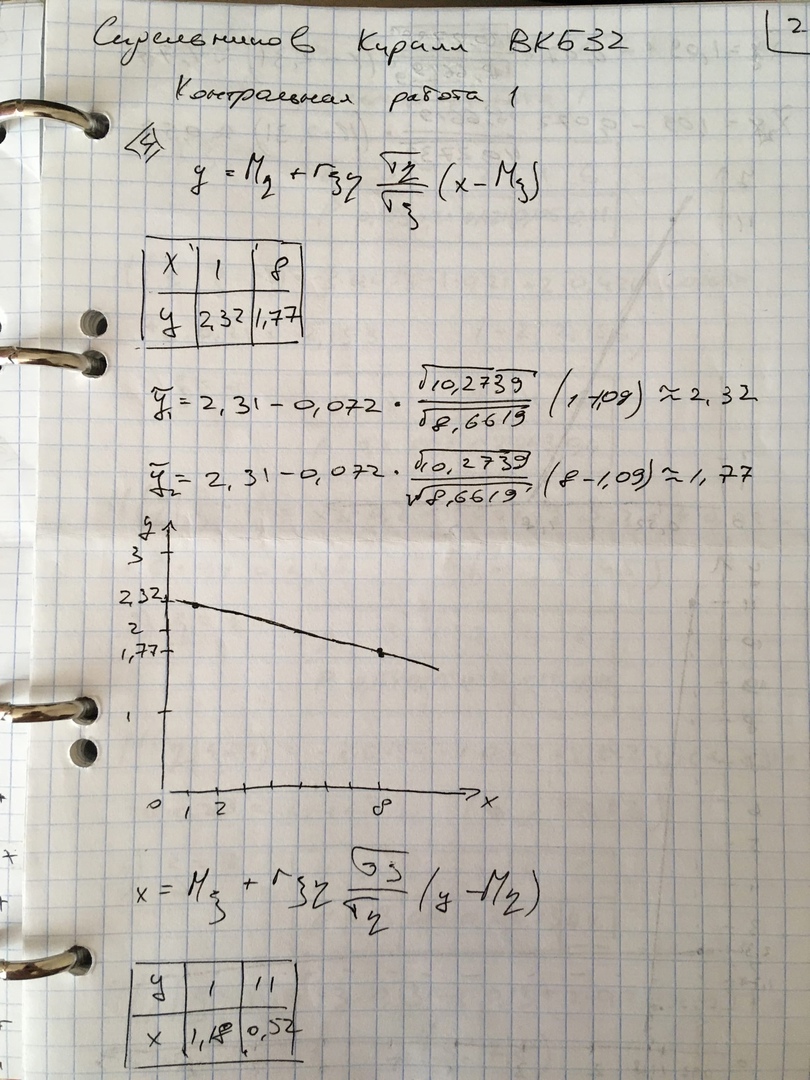 Стрельников Кирилл ВКБ32
2
Контрольная работа 1
4
y = Mη + rξη √η/√ξ (x - Mξ)
x 1 8
y 2,32 1,77
ỹ₁ = 2,31 - 0,072 · √10,2739/√8,6619 (1-1,09) ≈ 2,32
ỹ₂ = 2,31 - 0,072 · √10,2739/√8,6619 (8-1,09) ≈ 1,77
y
3
2,32
2
1,77
1
0 1 2 8 x
x = Mξ + rξη σξ/ση (y - Mη)
y 1 11
x 1,18 0,52